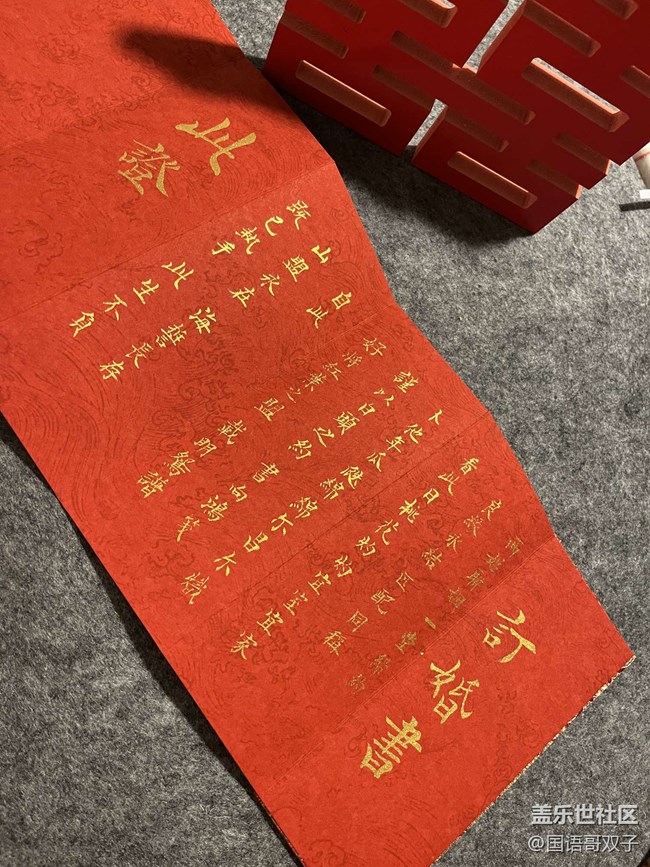 訂婚書
兩姓聯姻 一堂締約
良緣永結 匹配同稱
看此日桃花灼灼 宜室宜家
卜他年瓜瓞綿綿 爾昌爾熾
謹以白頭之約 書向鴻箋
好將紅葉之盟 載明鴛譜
自此
山盟永在 海誓長存
既已執手 此生不負
此證
盖乐世社区
@国语哥双子